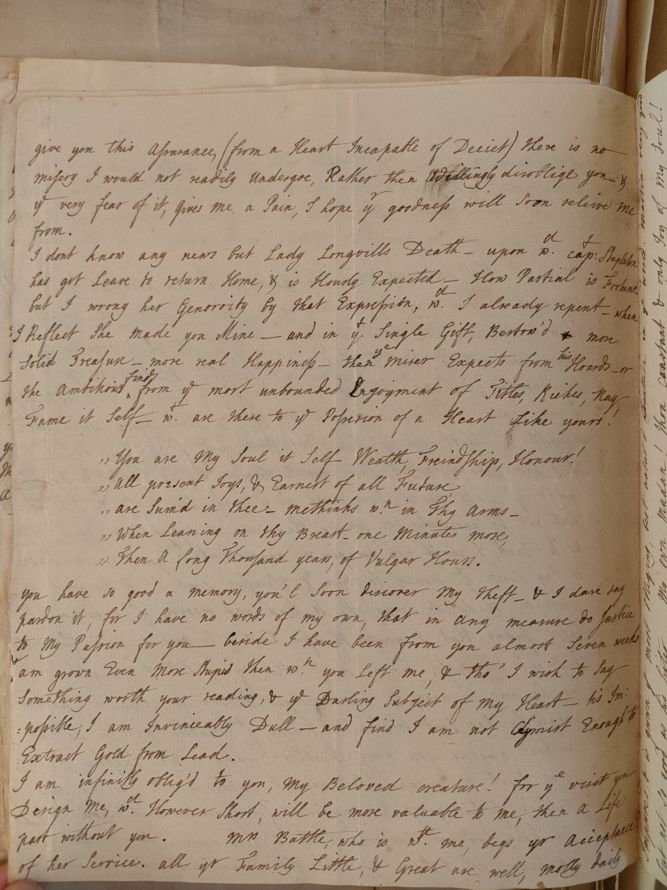 give you this Assurance, (from a Heart Incapable of Deciet) there is no
misery I would not readily Undergoe, Rather then Willingly disoblige you - &
yr very fear of it, gives me, a Pain, I hope yr goodness will soon releive me
from.
I dont know any news but Lady Longvills Death - upon wch. capt: Stapleton
has got Leave to return Home, & is Hourly Expected - How Partial is Fortune
but I wrong her Generosity by that Expression, wch. I already repent - when
I Reflect She made you Mine - and in yt Single Gift, Bestow'd more
Solid Treasure - more real Happiness - then ye miser Expects from his Hoards - or
the Ambitious finds from ye most unbounded Enjoyment of Titles, Riches, Nay
Fame it Self - wt. are these to ye Possesion of a Heart Like yours!
,, You are My Soul it Self Wealth, Freindship, Honour!
,, all present Joys, & Earnest of all Future,
,, are Sum'd in thee - methinks wn in Thy Arms -
,, When Leaning on thy Breast - one Minutes more,
,, Then A Long Thousand years, of Vulgar Hours.
you have so good a memory, you'l Soon discover My theft - & I dare say
pardon it, for I have no words of my own, that in any measure do Justice
to My Passion for you - beside I have been from you almost Seven weeks
am grown Even More Stupid then wn you Left me, & tho' I wish to say
Something worth your reading, & ye Darling Subject of my Heart - his Im-
:possible, I am Invincably Dull - and find I am not Chymist Enough to
Extract Gold from Lead.
I am infinitly oblig'd to you, My Beloved creature! for ye visit you
Design Me, wch. However Short, will be more valuable to me, then a Life
past without you. Mrs Battle, who is wth. me, begs yr acceptance
of her Service. all yr Family Little, & Great are well, molly daily